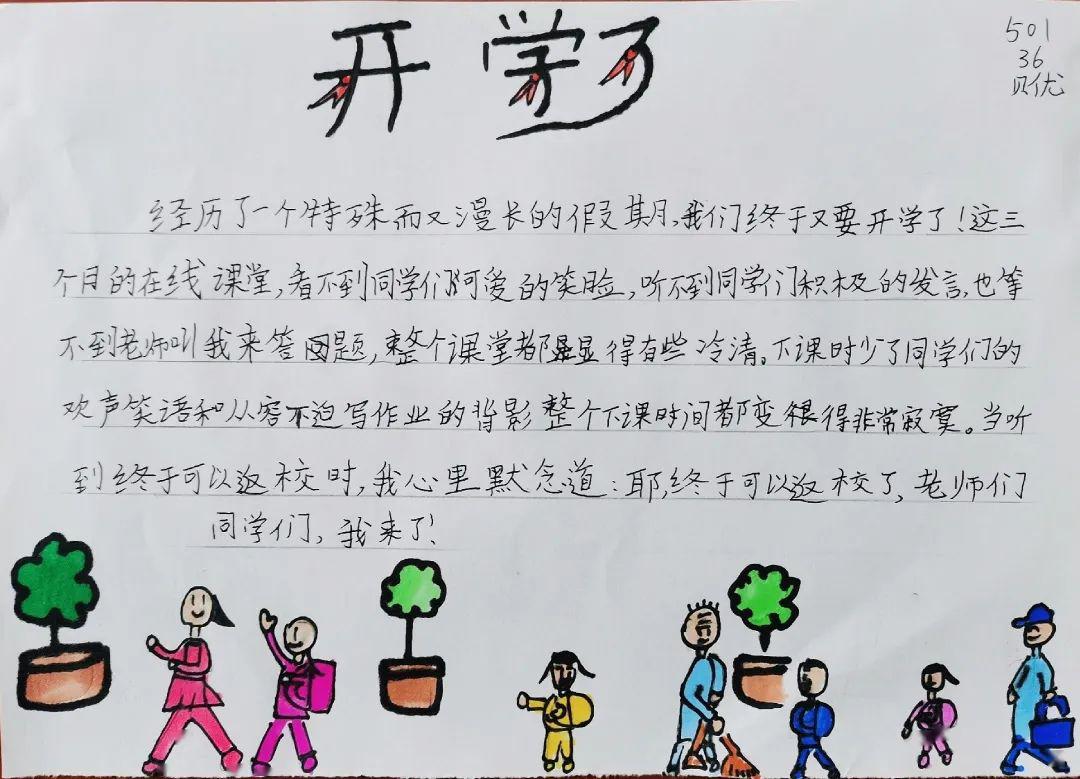 开学了
501
36
贝优
经历了一个特殊而又漫长的假期,我们终于又要开学了!这三
个月的在线课堂,看不到同学们可爱的笑脸,听不到同学们积极的发言,也等
不到老师叫我来答问题,整个课堂都显得有些冷清。下课时少了同学们的
欢声笑语和从容不迫写作业的背影整个下课时间都变得非常寂寞。当听
到终于可以返校时,我心里默念道:耶,终于可以返校了,老师们
同学们,我来了!